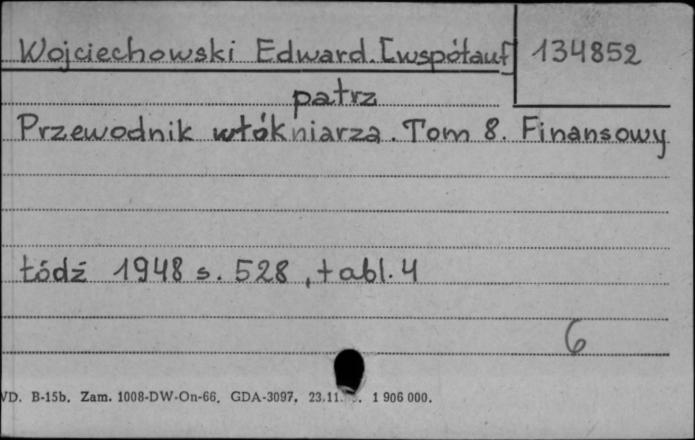 Wojciechowski Edward. [współaut] 134852
patrz
Przewodnik włókniarza. Tom 8. Finansowy
Łódź 1948 s. 528, tabl. 4
6
WD. B-15b. Zam. 1008-DW-On-66. GDA-3097. 23.11. 1 906 000.